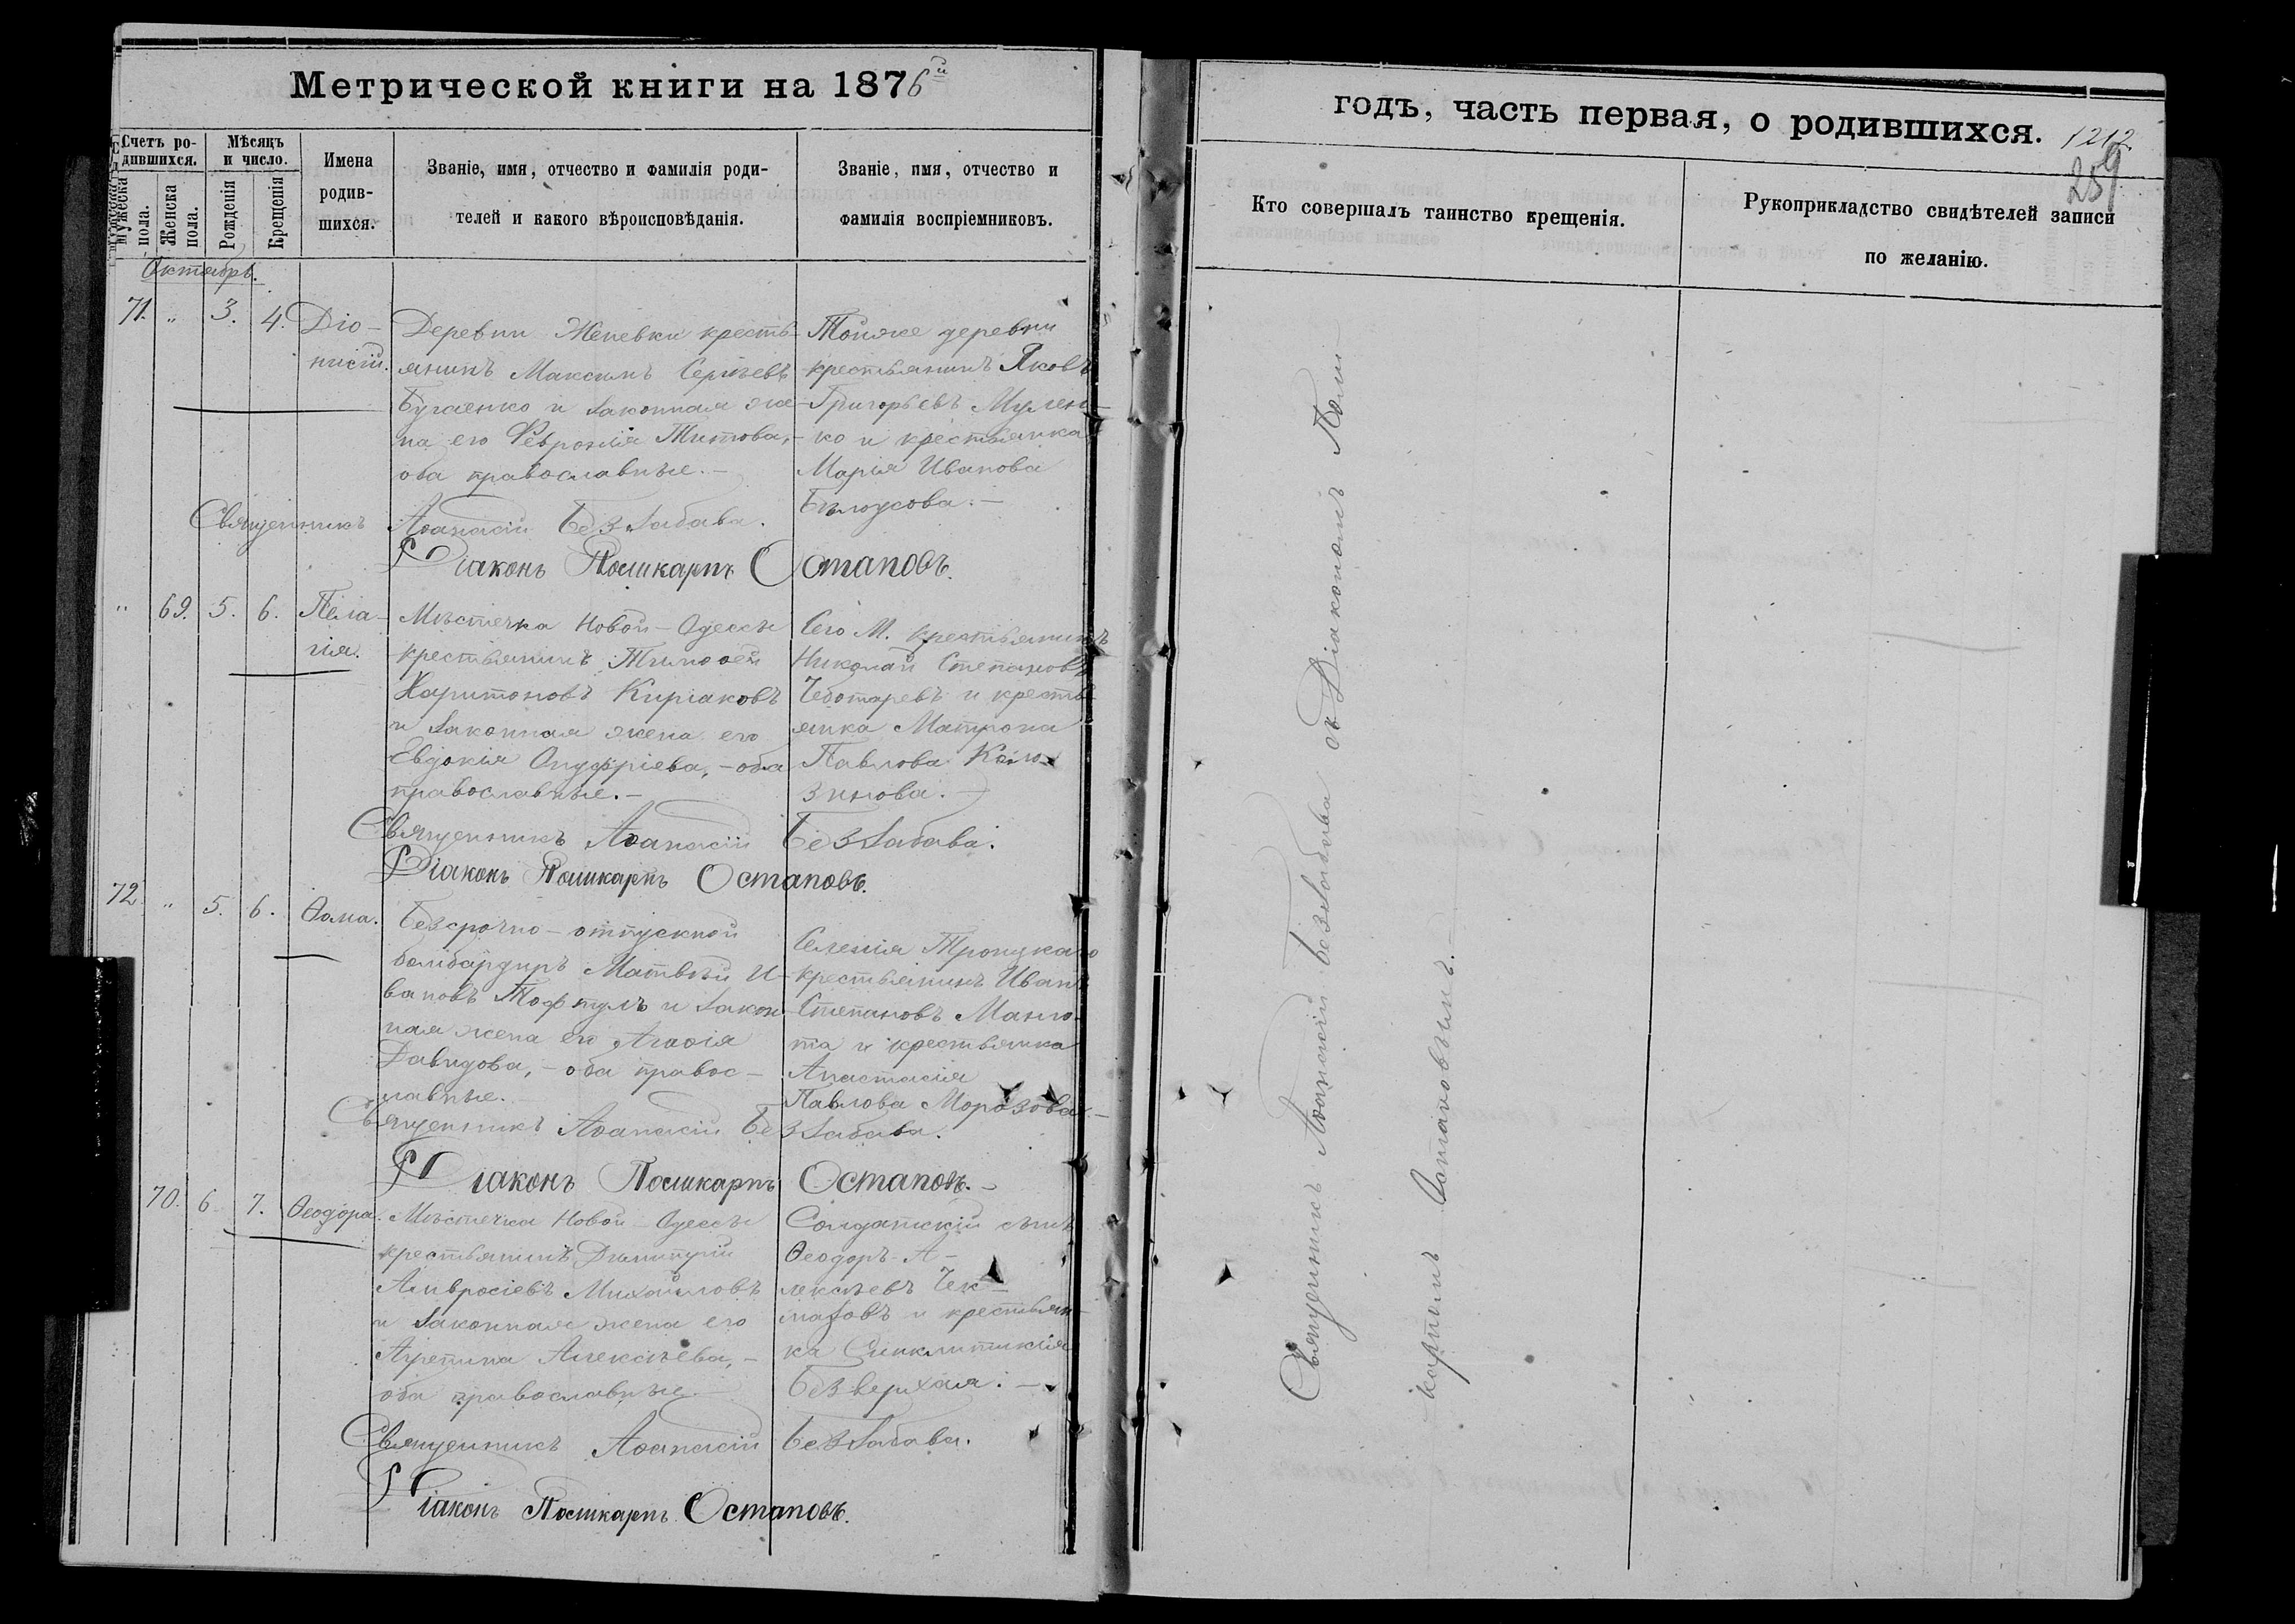 Метрической книги на 1876й
Счетъ ро-
дившихся.
Мужеска
пола.
Женска
пола.
Мѣсяцъ
и число.
Рожденія
Крещенія
Имена
родив-
шихся.
Званіе, имя, отчество и фамилія роди-
телей и какого вѣроисповѣданія.
Званіе, имя, отчество и
фамилія воспріемниковъ.
Октябрь.
71. " 3. 4. Діо-
нисій.
Деревни Женевки кресть-
янинъ Максимъ Сергѣевъ
Бугаенко и законная же-
на его Феврония Титова,
оба православные.-
Тойже деревни
крестьянинъ Яковъ
Григорьевъ
ко и крестьянка
Марія Иванова
Бѣлоусова.-
Священникъ Аѳанасій Беззабава.
Діаконъ Поликарпъ Остаповъ.
" 69. 5. 6. Пела-
гія.
Мѣстечка Новой-Одессы
крестьянинъ Тимоѳей
Харитоновъ Киріаковъ
и законная жена его
Евдокія Онуфріева, - оба
православные.-
Сего М. крестьянинъ
Николай Степановъ
Чеботаревъ и кресть-
янка Матрона
Павлова
Священникъ Аѳанасій Беззабава.
Діаконъ Поликарпъ Остаповъ.
72. " 5. 6. Ѳома.
Безсрочно-отпускной
бомбардиръ Матвѣй И-
вановъ Тофтулъ и закон-
ная жена его Агаѳія
Давидова, - оба правос-
лавные.-
Селенія Троицкаго
крестьянинъ Иванъ
Степановъ
та и крестьянка
Анастасія
Павлова Морозова.-
Священникъ Аѳанасій Беззабава.
Діаконъ Поликарпъ Остаповъ.-
70. 6. 7. Ѳеодора.
Мѣстечка Новой-Одессы
крестьянинъ Димитрій
Амвросіевъ Михайловъ
и законная жена его
Агрепина Алексѣева, -
оба православные.-
Солдатскій сынъ
Ѳеодоръ А-
лексѣевъ Чек-
мазовъ и крестьян-
ка Синклитикія
Безверхая.-
Священникъ Аѳанасій Беззабава.
Діаконъ Поликарпъ Остаповъ.
годъ, часть первая, о родившихся.
1212.
259
Кто совершалъ таинство крещенія.
Рукоприкладство свидѣтелей записи
по желанію.
Священникъ Аѳанасій Беззабава съ Діакономъ Поли-
карпомъ Остаповымъ.-